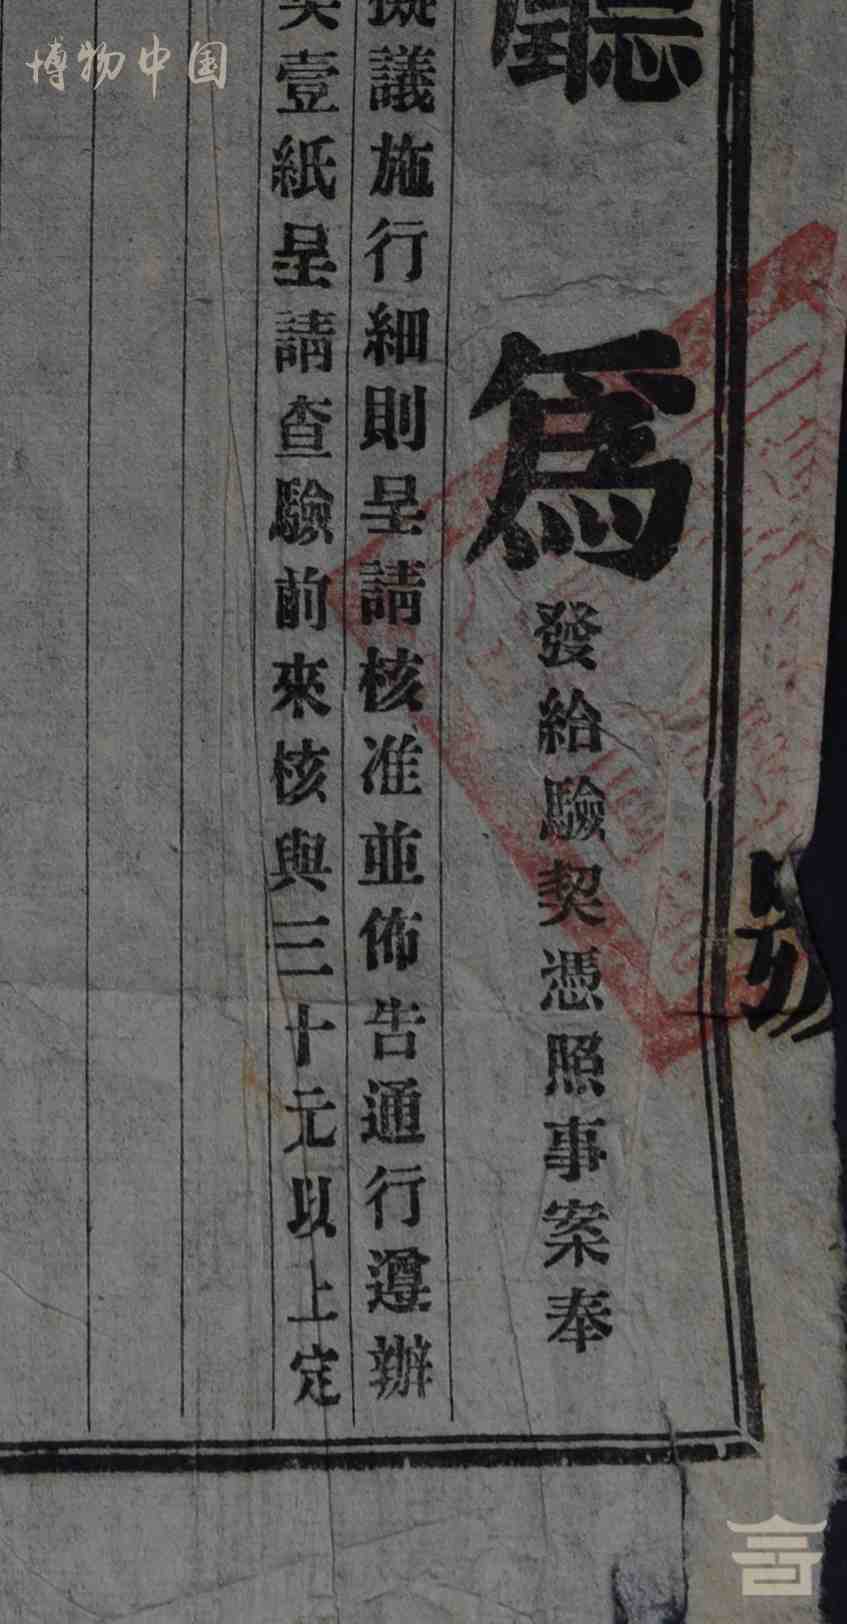 博物中国
廳爲發給驗契憑照事案奉
擬議施行細則呈請核准並佈告通行遵辦
契壹紙呈請查驗前來核與三十元以上定
號